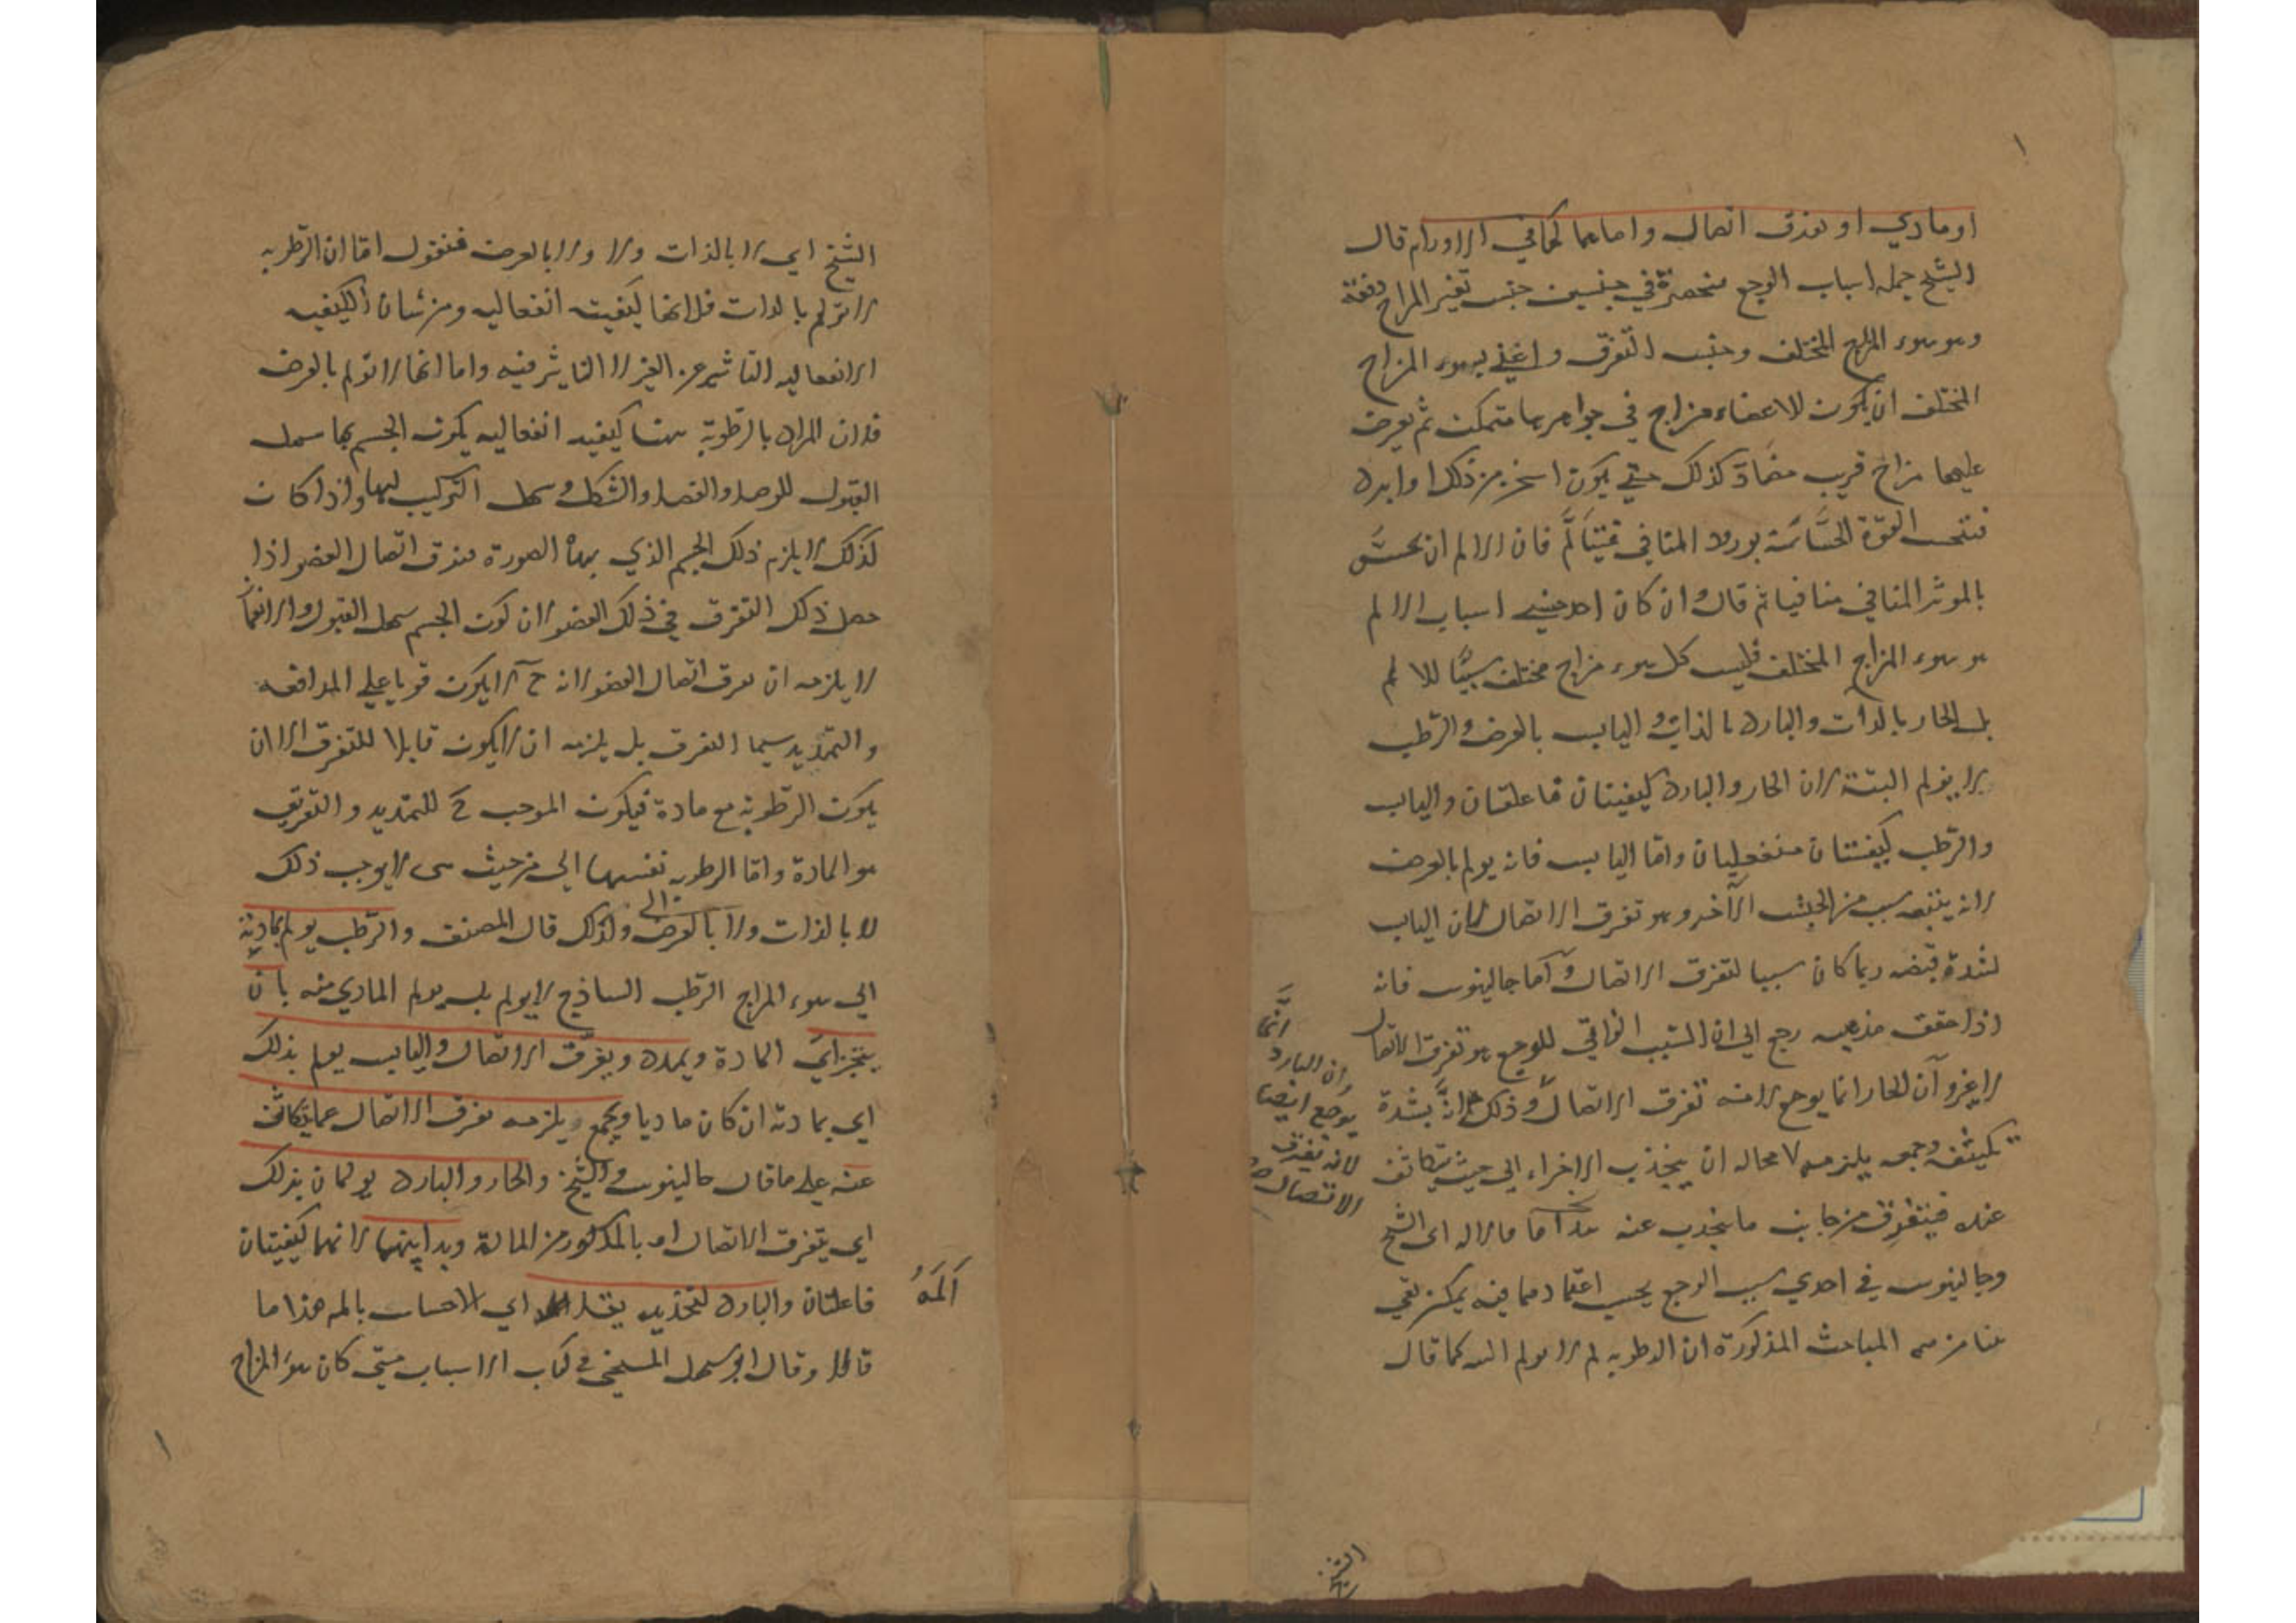 او مادي او تفرق اتصال واما هما كما في الاورام قال
الشيخ جملة اسباب الوجع منحصرة في جنسين جنس تغير المزاج دفعة
وهو سوء المزاج المختلف وجنس التفرق واعني بسوء المزاج
المختلف ان يكون للاعضاء مزاج في جواهرها متمكن ثم يعرض
عليها مزاج قريب مضاد كذلك حتي يكون اسخن من ذلك او ابرد
فتحس القوة الحساسة بورود المنافي فيتالم فان الالم ان يحس
بالموثر المنافي منافيا ثم قال وان كان احد جنسي اسباب الالم
هو سوء المزاج المختلف فليس كل سوء مزاج مختلف سببا للالم
بل الحار بالذات والبارد بالذات و اليابس بالعرض والرطب
لا يولم البتة لان الحار والبارد كيفيتان فاعلتان واليابس
والرطب كيفيتان منفعليان واما اليابس فانه يولم بالعرض
لانه يتبعه سبب من الجنس الآخر وهو تفرق الاتصال لان اليابس
لشدة قبضه ربما كان سببا لتفرق الاتصال و آما جالينوس فانه
اذا حقق مذهبه رجع الي ان السبب الذاتي للوجع هو تفرق الاتصال
لا غير و آن الحار انما يوجع لانه تفرق الاتصال و ذلك لانه بشدة
تكيثفه وجمعه يلزمه لا محاله ان ينجذب الاجزاء الي حيث يتكاثف
عنده فيتفرق من جانب ما ينجذب عنه هذا ما مال اليه الشيخ
وجالينوس في احدي سبب الوجع بحسب اعتقادهما فيه يمكن بقي
هنا من المباحث المذكورة ان الرطوبه لم لا يولم البته كما قال
انما
وان البارد
يوجع ايضا
لانه يفرق
الاتصال
الشيخ
الشيخ اي لا بالذات ولا بالعرض فنقول اما ان الرطوبه
لا تولم بالذات فلانها كيفيت انفعاليه ومن شان الكيفيه
الانفعاليه التاثير عن الغير لا التاثير فيه واما انها لا تولم بالعرض
فلان المراد بالرطوبة هنا كيفيه انفعاليه يكون الجسم بها سهل
القبول للوصل والفصل والتشكل وسهل التركيب لها واذا كان
كذلك لا يلزم ذلك الجسم الذي بهذه الصورة تفرق اتصال العضو اذا
حصل ذلك التفرق في ذلك العضو لان كون الجسم سهل القبول والانفعال
لا يلزمه ان يفرق اتصال العضو لانه ح لا يكون قويا علي المدافعه
والتمديد سيما التفرق بل يلزمه ان لا يكون قابلا للتفرق الا ان
يكون الرطوبه مع مادة فيكون الموجب ح للتمديد و التفريق
هو المادة واما الرطوبه نفسها اي من حيث هي لا يوجب ذلك
لا بالذات ولا بالعرض ولذلك قال المصنف والرطب يولم بمادته
اي سوء المزاج الرطب الساذج لا يولم بل يولم المادي منه بان
اي المادة ويمدد ويفرق الاتصال واليابس يولم بذلك
اي بمادته ان كان ماديا ويجمع ويلزمه تفرق الاتصال عما يتكاثف
عنه علي ما قال جالينوس والشيخ والحار والبارد يولمان بذلك
اي بتفرق الاتصال او بالمذكور من المادة وبذاتيهما لانهما كيفيتان
فاعلتان والبارد لتخذيره يقلل اي الاحساس بالمه هذا ما
قالا وقال ابو سهل المسيحي في كتاب الاسباب متي كان سوء المزاج
اَلَمَهُ